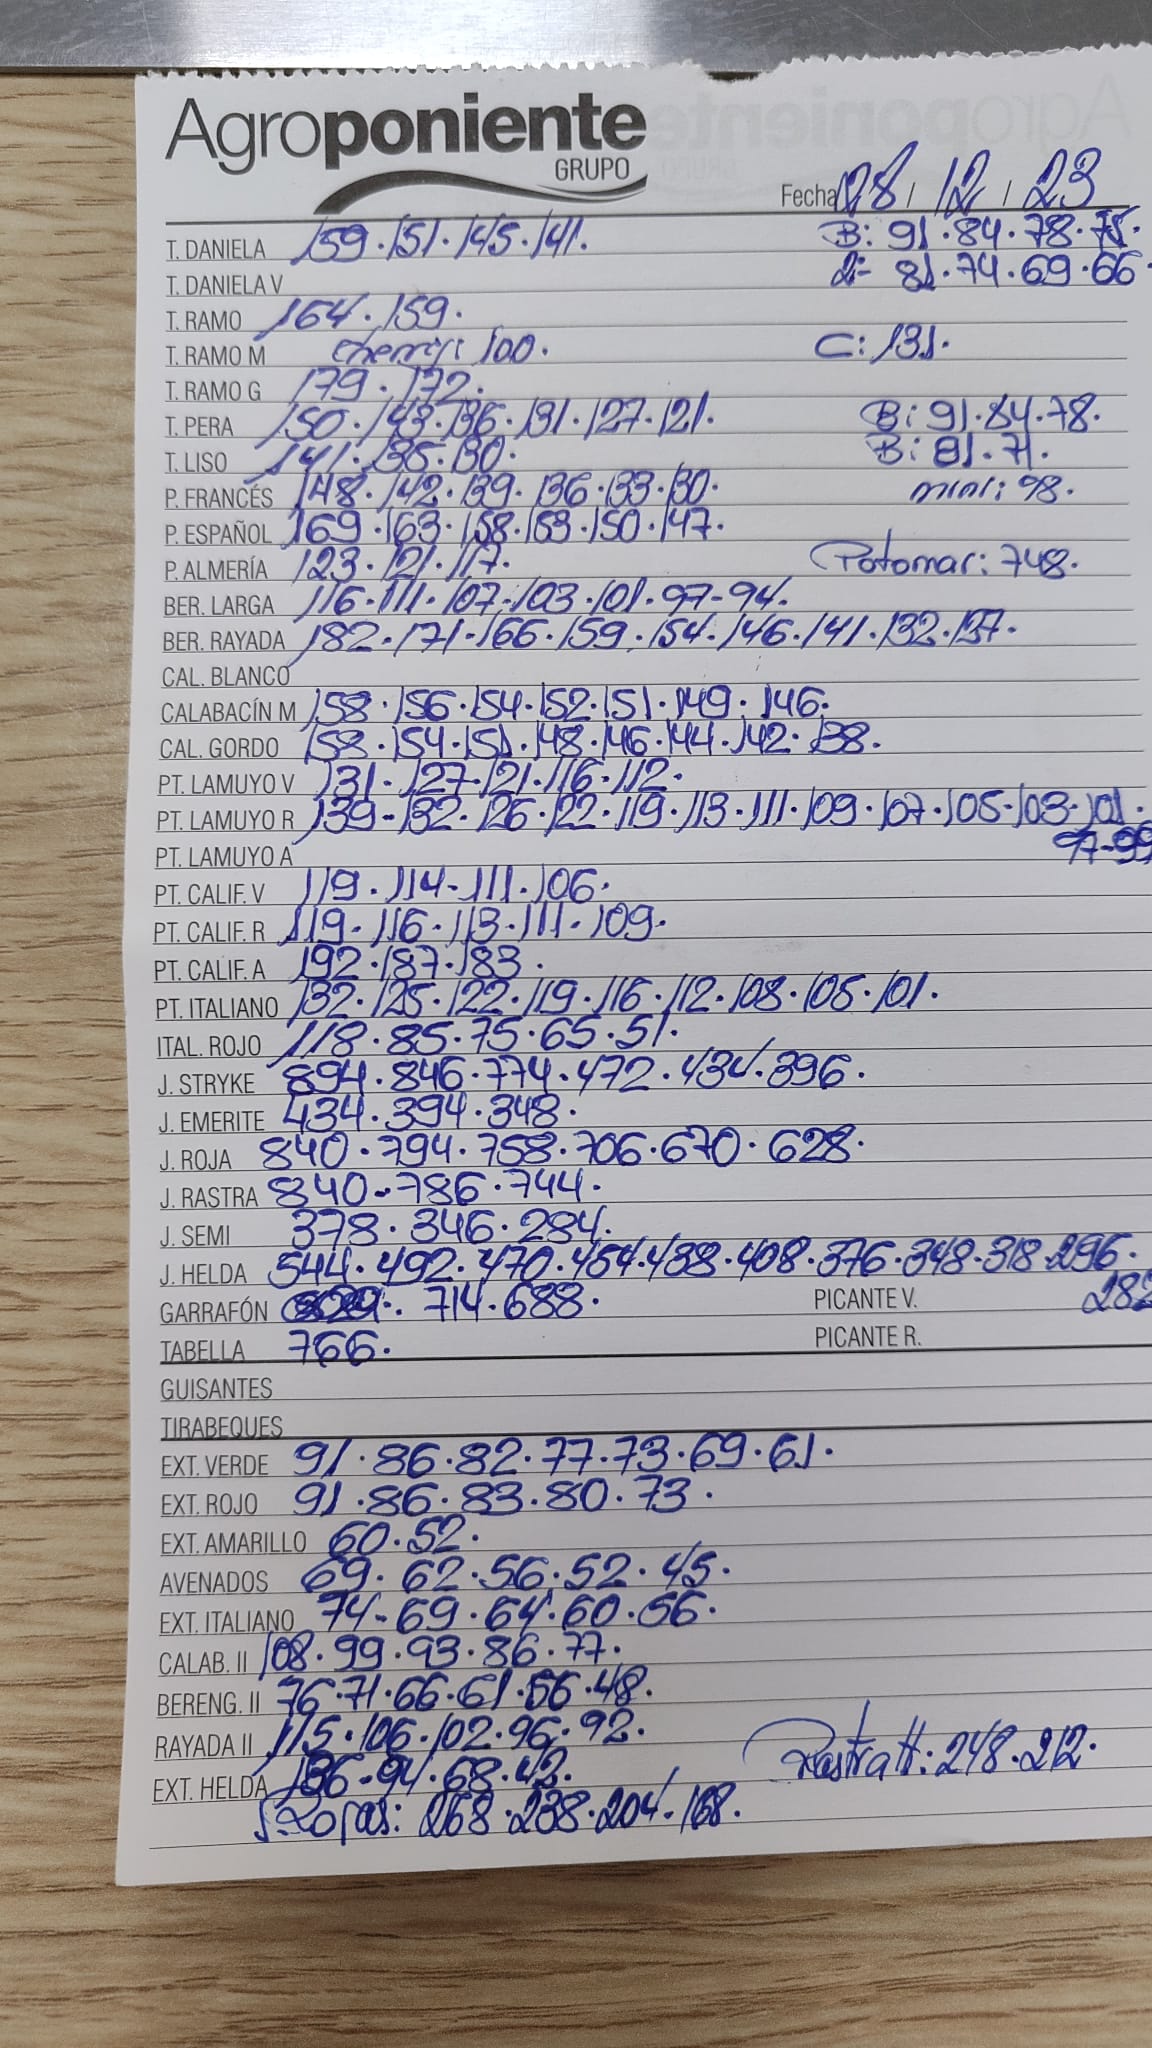 Agroponiente
GRUPO
Fecha 28 / 12 / 23
T. DANIELA 159 . 151 . 145 . 141. B: 91 . 84 . 78 . 75.
T. DANIELA V 2= 81 . 74 . 69 . 66
T. RAMO 164 . 159.
T. RAMO M cherry: 100. C: 131.
T. RAMO G 179 . 172.
T. PERA 150 . 143 . 136 . 131 . 127 . 121. B: 91 . 84 . 78.
T. LISO 141 . 135 . 130. B: 81 . 71.
P. FRANCÉS 148 . 142 . 139 . 136 . 133 . 130. mini: 98.
P. ESPAÑOL 169 . 163 . 158 . 153 . 150 . 147.
P. ALMERÍA 123 . 121 . 117. Potomar: 748.
BER. LARGA 116 . 111 . 107 . 103 . 101 . 97 - 94.
BER. RAYADA 182 . 171 - 166 . 159 . 154 . 146 . 141 . 132 . 127.
CAL. BLANCO
CALABACÍN M 158 . 156 . 154 . 152 . 151 . 149 . 146.
CAL. GORDO 158 . 154 . 151 . 148 . 146 . 144 . 142 . 138.
PT. LAMUYO V 131 . 127 . 121 . 116 . 112.
PT. LAMUYO R 139 - 132 . 126 . 122 . 119 . 113 . 111 . 109 . 107 . 105 . 103 . 101.
PT. LAMUYO A 97-99
PT. CALIF. V 119 . 114 - 111 . 106.
PT. CALIF. R 119 . 116 . 113 . 111 . 109.
PT. CALIF. A 192 . 187 . 183.
PT. ITALIANO 132 . 125 . 122 . 119 . 116 . 112 . 108 . 105 . 101.
ITAL. ROJO 118 . 85 . 75 . 65 . 51.
J. STRYKE 894 . 846 . 774 . 472 . 434 . 396.
J. EMERITE 434 . 394 . 348.
J. ROJA 840 . 794 . 758 . 706 . 670 . 628.
J. RASTRA 840 - 786 . 744.
J. SEMI 378 . 346 . 284.
J. HELDA 544 . 492 . 470 . 454 . 438 . 408 . 376 . 348 . 318 . 296.
GARRAFÓN 714 . 688. PICANTE V. 282
TABELLA 766. PICANTE R.
GUISANTES
TIRABEQUES
EXT. VERDE 91 . 86 . 82 . 77 . 73 . 69 . 61.
EXT. ROJO 91 . 86 . 83 . 80 . 73.
EXT. AMARILLO 60 . 52.
AVENADOS 69 . 62 . 56 . 52 . 45.
EXT. ITALIANO 74 - 69 . 64 . 60 . 56.
CALAB. II 108 . 99 . 93 . 86 . 77.
BERENG. II 76 . 71 . 66 . 61 . 56 . 48.
RAYADA II 115 . 106 . 102 . 96 . 92.
EXT. HELDA 136 - 94 . 68 . 42. Rastra II: 248 . 212.
268 . 238 . 204 . 168.